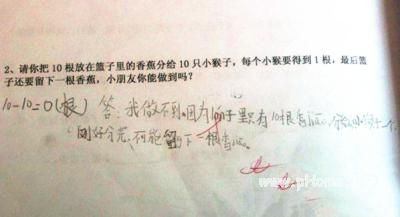 2、请你把10根放在篮子里的香蕉分给10只小猴子，每个小猴要得到1根，最后篮
子还要留下一根香蕉，小朋友你能做到吗？
10-10=0（根） 答：我做不到。因为 子里只有10根香蕉。
刚好分完，不能留下一根香蕉。